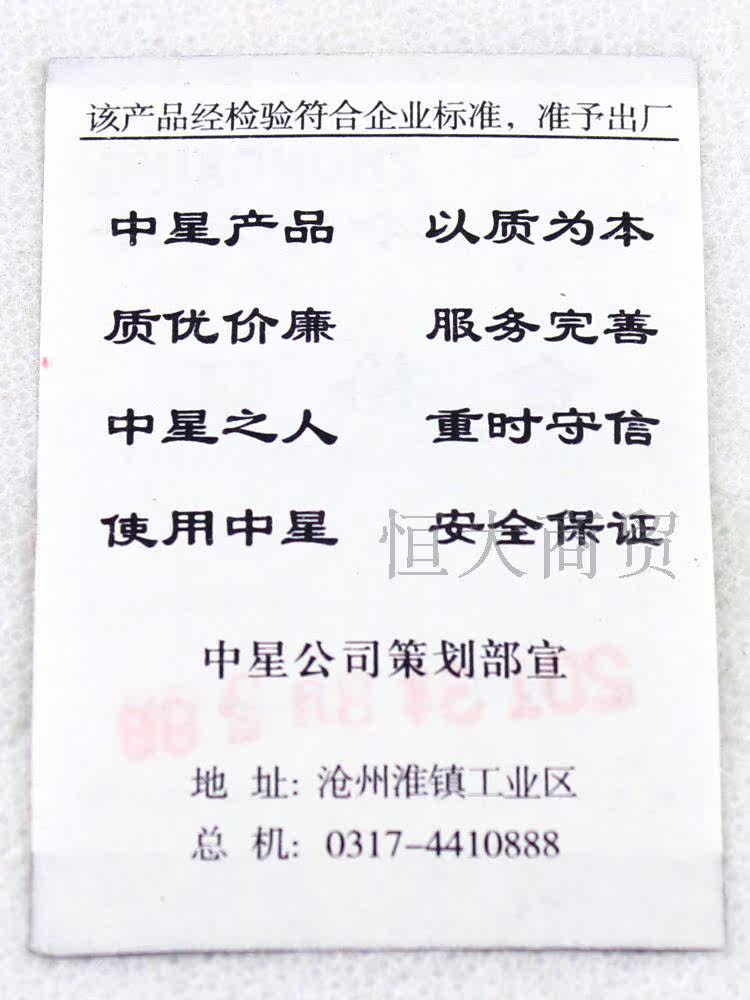 该产品经检验符合企业标准，准予出厂
中星产品 以质为本
质优价廉 服务完善
中星之人 重时守信
使用中星 安全保证
恒大商贸
中星公司策划部宣
地 址: 沧州淮镇工业区
总 机: 0317-4410888